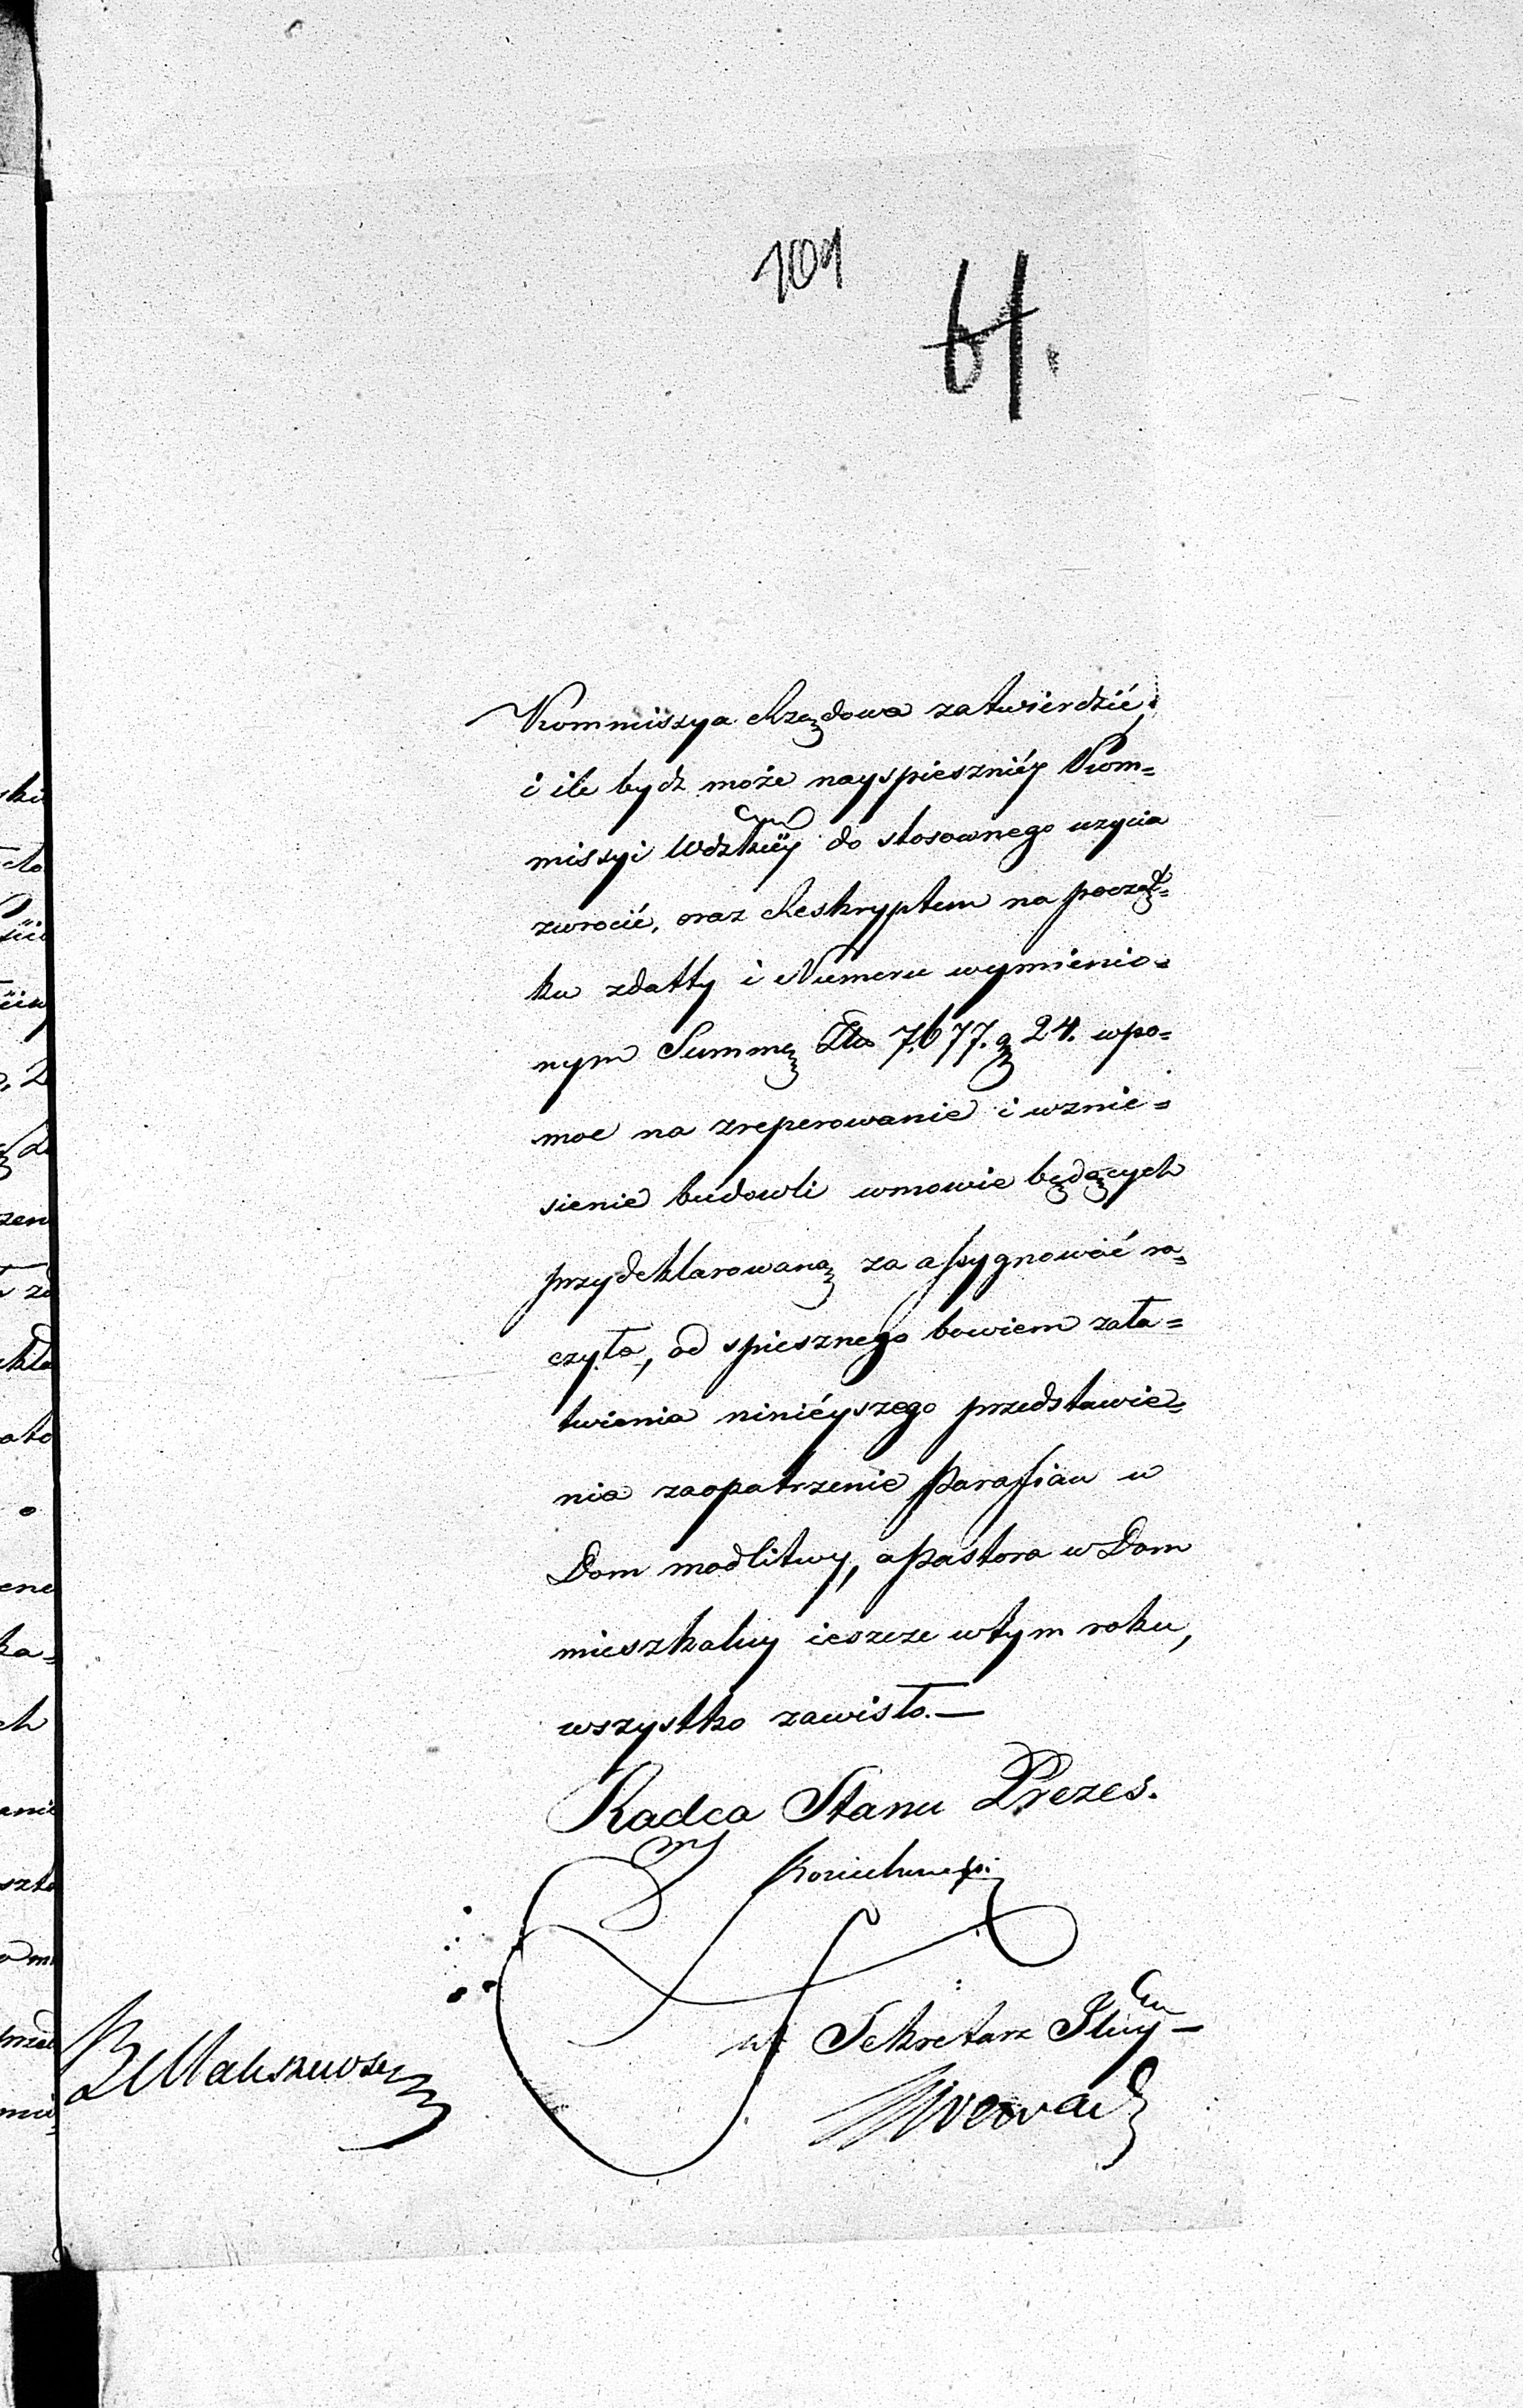 101
61.
Kommissya Rządowa zatwierdzić,
i ile bydz może nayspieszniéy Kom=
missyi Wdzkiéy do stosownego uzycia
zwrocić, oraz Reskryptem na począt=
ku zdatty i Numeru wymienio=
nym Summę Złp 7,677. g 24. wpo=
moc na zreperowanie i wznie=
sienie budowli wmowie będących
przydeklarowaną za assygnować ra=
czyła, od spiesznego bowiem zała=
twienia ninieyszego przedstawie=
nia zaopatrzenie Parafian w
Dom modlitwy, a Pastora w Dom
mieszkalny ieszcze wtym roku,
wszystko zawisło.—
Radca Stanu Prezes.
Sekretarz Jlny—